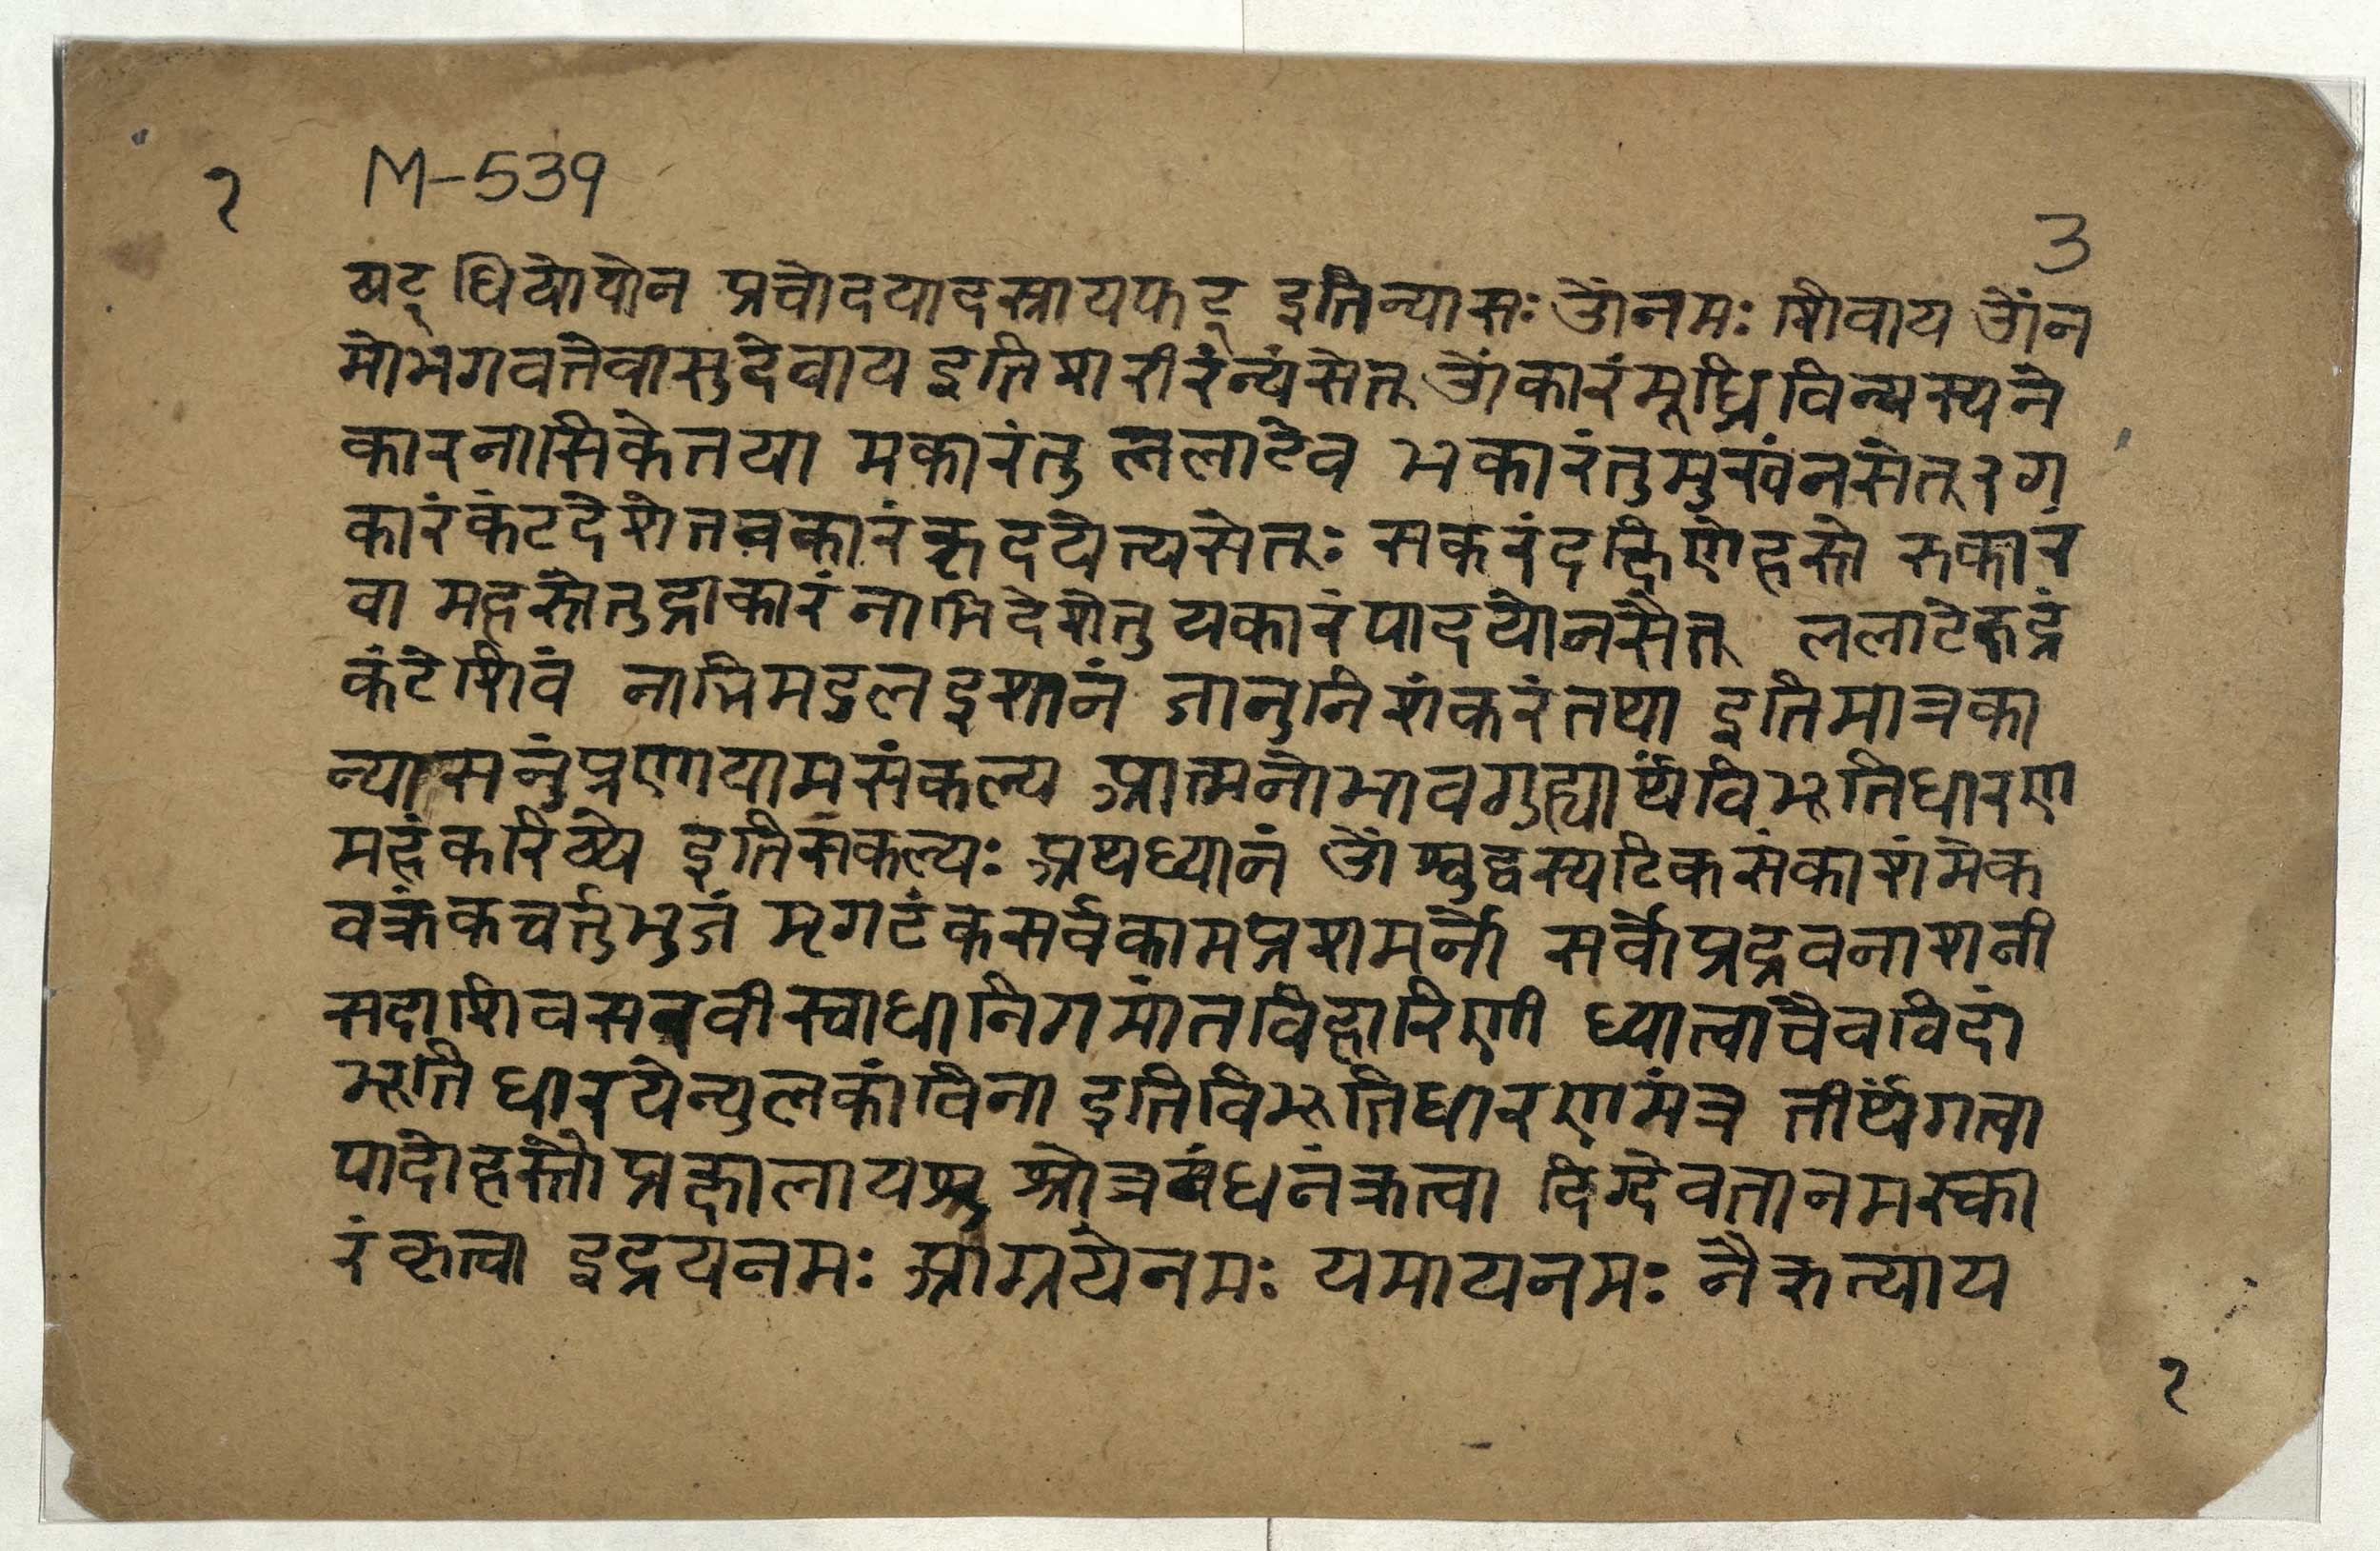 २ M-539
3
षट् धियोयोन प्रचोदयादस्त्रायफट् इतिन्यासः ॐनमः शिवाय ॐन
मोभगवतेवासुदेवाय इतिशरीरंन्यंसेत् ॐकारंमूर्ध्निविन्यस्यने
कारनासिकेतया मकारंतु ललाटेव भकारंतुमुखंनसेत् २ ग
कारंकंटदेशेतवकारंहृदयेत्यसेत्ः सकरंदक्षिणेहस्ते रुकारं
वा महस्तेतुद्राकारंनाभिदेशेतु यकारंपादयोनसेत् ललाटेरुद्रं
कंटेशिवं नाभिमद्रुलइशानं जानुनिशंकरंतथा इतिमात्रका
न्यासनुंप्रणयामसंकल्य आत्मनोभावगुह्यार्थेविभूतिधारण
महंकरिष्ये इतिसंकल्यः अथध्यानं ॐ शुद्धस्यटिकसंकाशंमेक
वक्रंकचर्त्तुभुजं मृगटंकसर्वकामप्रशमनौ सर्वोप्रद्रवनाशनी
सदाशिवसववीस्वाधानिगमांतविहारिणी ध्यात्वाचैवविदां
भूति धारयेन्युलकांविना इतिविभूतिधारणमंत्र तीर्थेगत्वा
पादोहस्तो प्रक्षालाय श्रोत्रबंधनंक्रत्वा दिग्देवतानमस्का
रंकृत्वा इद्रयनमः आग्नयेनमः यमायनमः नैरुत्याय
२